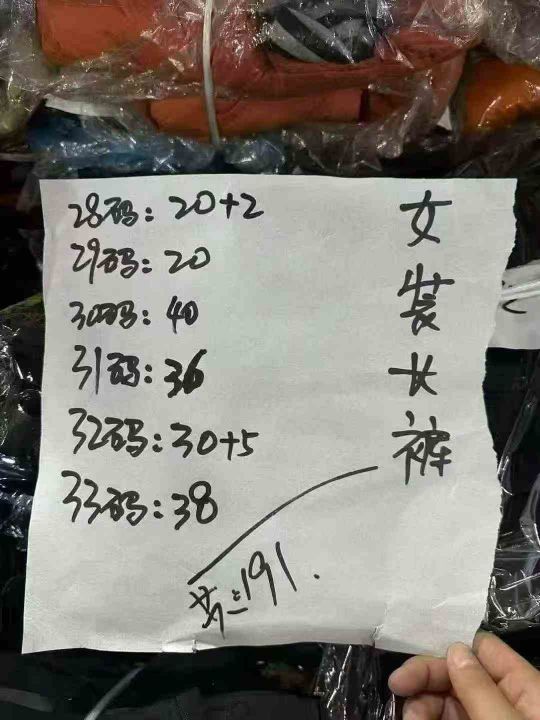 28码:20+2
29码:20
30码:40
31码:36
32码:30+5
33码:38
女装长裤
共:191.